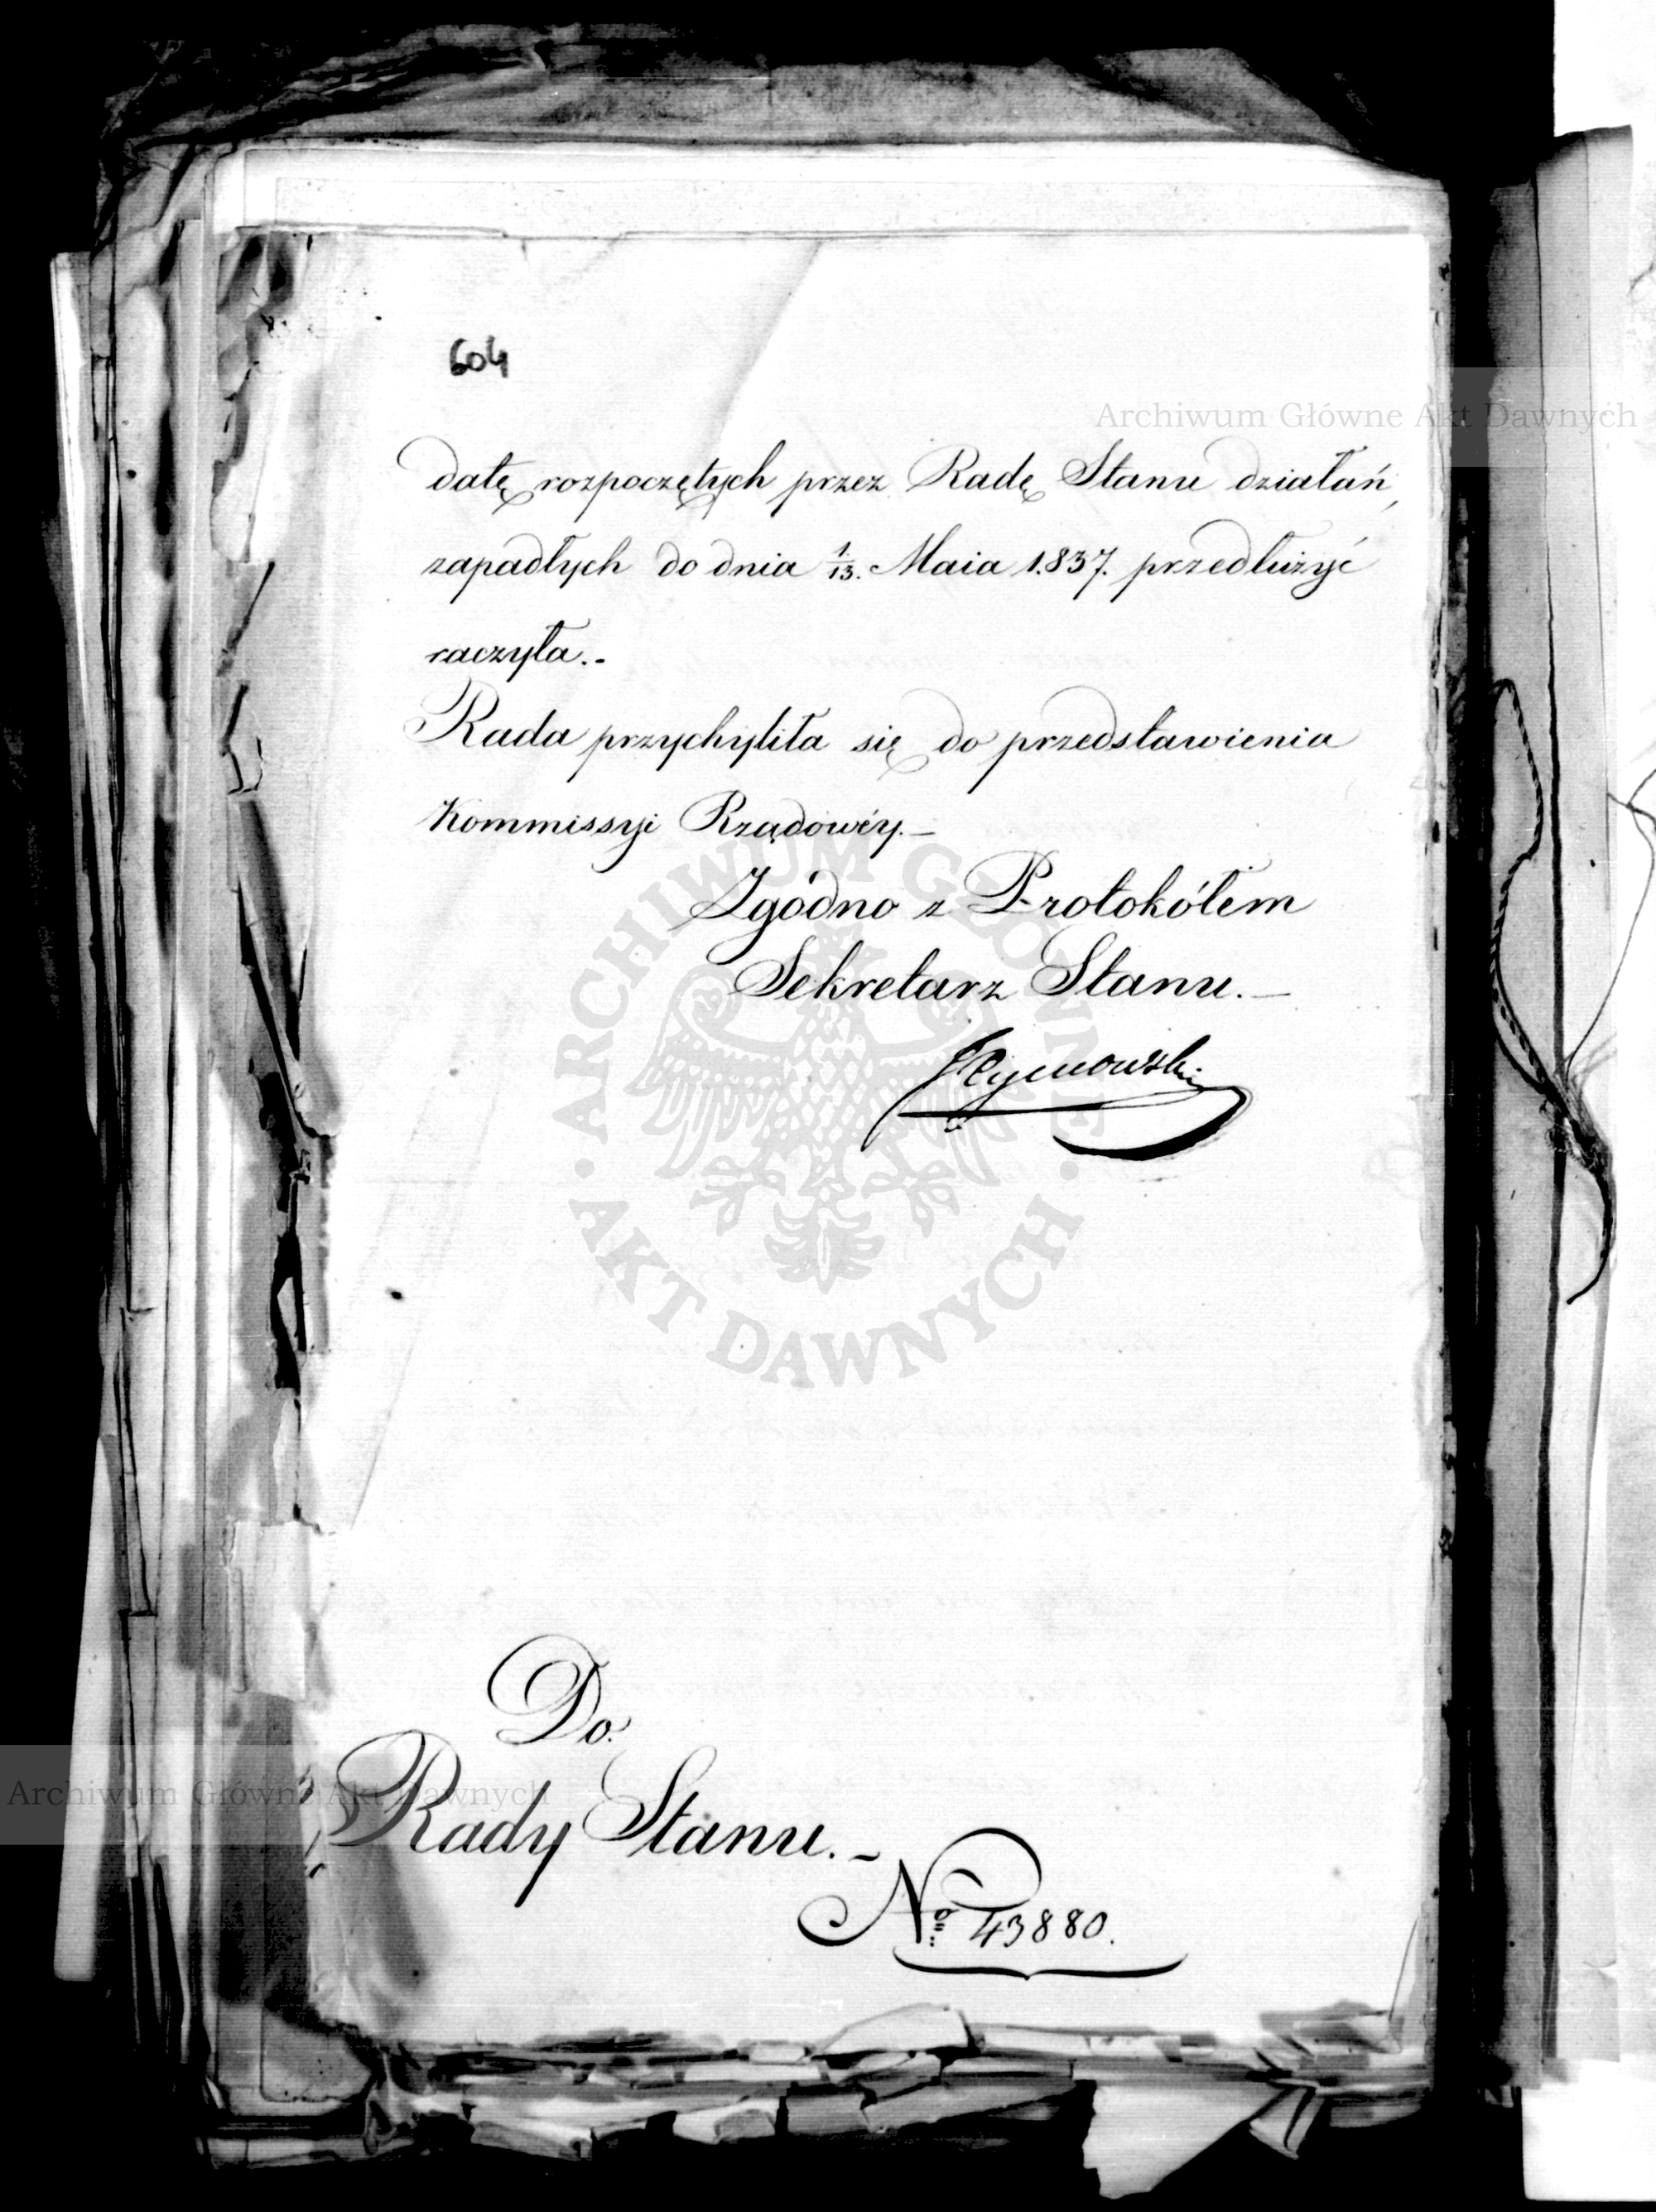 604
Archiwum Główne Akt Dawnych
datę rozpoczętych przez Radę Stanu działań,
zapadłych do dnia 1/13. Maia 1.837. przedłużyć
raczyła.-
Rada przychyliła się do przedstawienia
Kommissyi Rządowéy.-
Zgodno z Protokółem
Sekretarz Stanu.-
ARCHIWUM GŁÓWNE · AKT DAWNYCH ·
Do.
Rady Stanu.-
Archiwum Główne Akt Dawnych
No 43880.